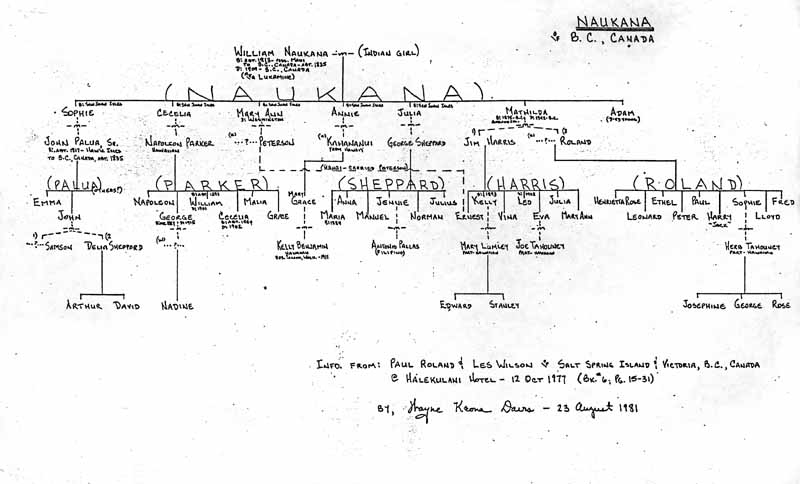 NAUKANA
B.C., CANADA
WILLIAM NAUKANA (INDIAN GIRL)
TO B.C., CANADA - ABT. 1835
D: 1909 - B.C., CANADA
(NAUKANA)
SOPHIE CECELIA MARY ANN ANNIE JULIA MATHILDA ADAM
D: WASHINGTON
(D: YOUNG)
JOHN PALUA, SR. NAPOLEON PARKER PETERSON KAHANANUI GEORGE SHEPPARD JIM HARRIS ROLAND
HAWAIIAN
TO B.C., CANADA, ABT. 1835
(HANAI - CARRIED PETERSON)
(PALUA) (OTHERS?) (PARKER) (SHEPPARD) (HARRIS) (ROLAND)
EMMA NAPOLEON WILLIAM MALIA GRACE ANNA JENNIE JULIUS KELLY LEO JULIA HENRIETTA ROSE ETHEL PAUL SOPHIE FRED
JOHN GEORGE CECELIA GRACE MARIA MANUEL NORMAN ERNEST VINA EVA MARY ANN LEONARD PETER HARRY LLOYD
"JACK"
SAMSON DELIA SHEPPARD KELLY BENJAMIN ANTONIO PALLAS MARY LUMLEY JOE TAHOUNEY HERB TAHOUNEY
HAWAIIAN (FILIPINO) PART-HAWAIIAN PART-HAWAIIAN PART-HAWAIIAN
ARTHUR DAVID NADINE EDWARD STANLEY JOSEPHINE GEORGE ROSE
INFO. FROM: PAUL ROLAND & LES WILSON SALT SPRING ISLAND & VICTORIA, B.C., CANADA
@ HALEKULANI HOTEL - 12 OCT 1977 (BK. #6; PG. 15-31)
BY, Keona Davis - 23 August 1981